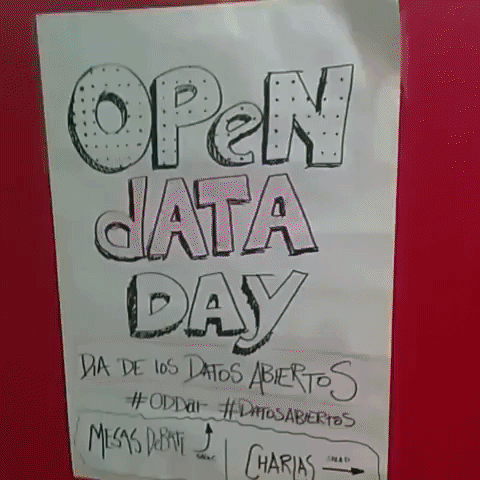 OPeN
dATA
DAY
DIA DE LOS DATOS ABIERTOS
#ODDar #DATOSABIERTOS
MESAS DeBATE
CHARLAS